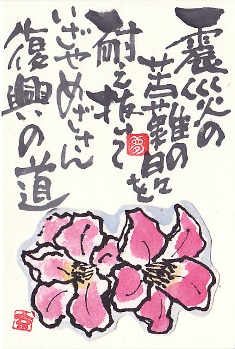 震災の
苦難の日を
耐え抜いて
いざやめざさん
復興の道